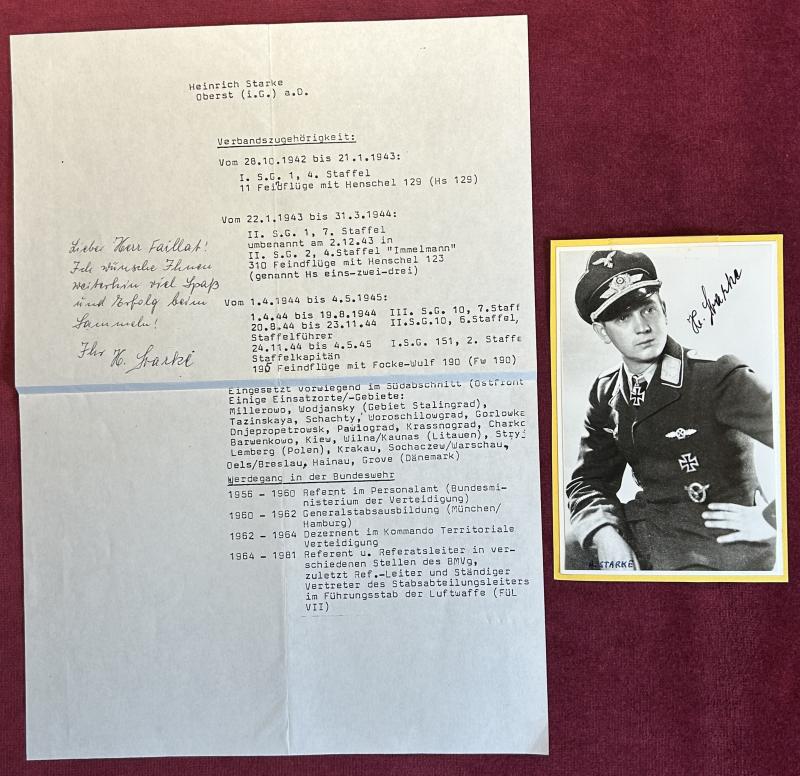 Heinrich Starke
Oberst (i.G.) a.D.
Verbandszugehörigkeit:
Vom 28.10.1942 bis 21.1.1943:
I. S.G. 1, 4. Staffel
11 Feindflüge mit Henschel 129 (Hs 129)
Vom 22.1.1943 bis 31.3.1944:
II. S.G. 1, 7. Staffel
umbenannt am 2.12.43 in
II. S.G. 2, 4.Staffel "Immelmann"
310 Feindflüge mit Henschel 123
(genannt Hs eins-zwei-drei)
Vom 1.4.1944 bis 4.5.1945:
1.4.44 bis 19.8.1944 III. S.G. 10, 7.Staff
20.8.44 bis 23.11.44 II.S.G.10, 6.Staffel,
Staffelführer
24.11.44 bis 4.5.45 I.S.G. 151, 2. Staffe
Staffelkapitän
190 Feindflüge mit Focke-Wulf 190 (Fw 190)
Lieber Herr Faillat!
Ich wünsche Ihnen
weiterhin viel Spaß
und Erfolg beim
Sammeln!
Ihr H. Starke
Eingesetzt vorwiegend im Südabschnitt (Ostfront
Einige Einsatzorte/-Gebiete:
Millerowo, Wodjansky (Gebiet Stalingrad),
Tazinskaya, Schachty, Woroschilowgrad, Gorlowka
Dnjepropetrowsk, Pawlograd, Krassnograd, Charko
Barwenkowo, Kiew, Wilna/Kaunas (Litauen), Stryj
Lemberg (Polen), Krakau, Sochaczew/Warschau,
Oels/Breslau, Hainau, Grove (Dänemark)
Werdegang in der Bundeswehr
1956 - 1960 Refernt im Personalamt (Bundesmi-
nisterium der Verteidigung)
1960 - 1962 Generalstabsausbildung (München/
Hamburg)
1962 - 1964 Dezernent im Kommando Territoriale
Verteidigung
1964 - 1981 Referent u. Referatsleiter in ver-
schiedenen Stellen des BMVg,
zuletzt Ref.-Leiter und Ständiger
Vertreter des Stabsabteilungsleiters
im Führungsstab der Luftwaffe (FüL
VII)
H. Starke
H. STARKE